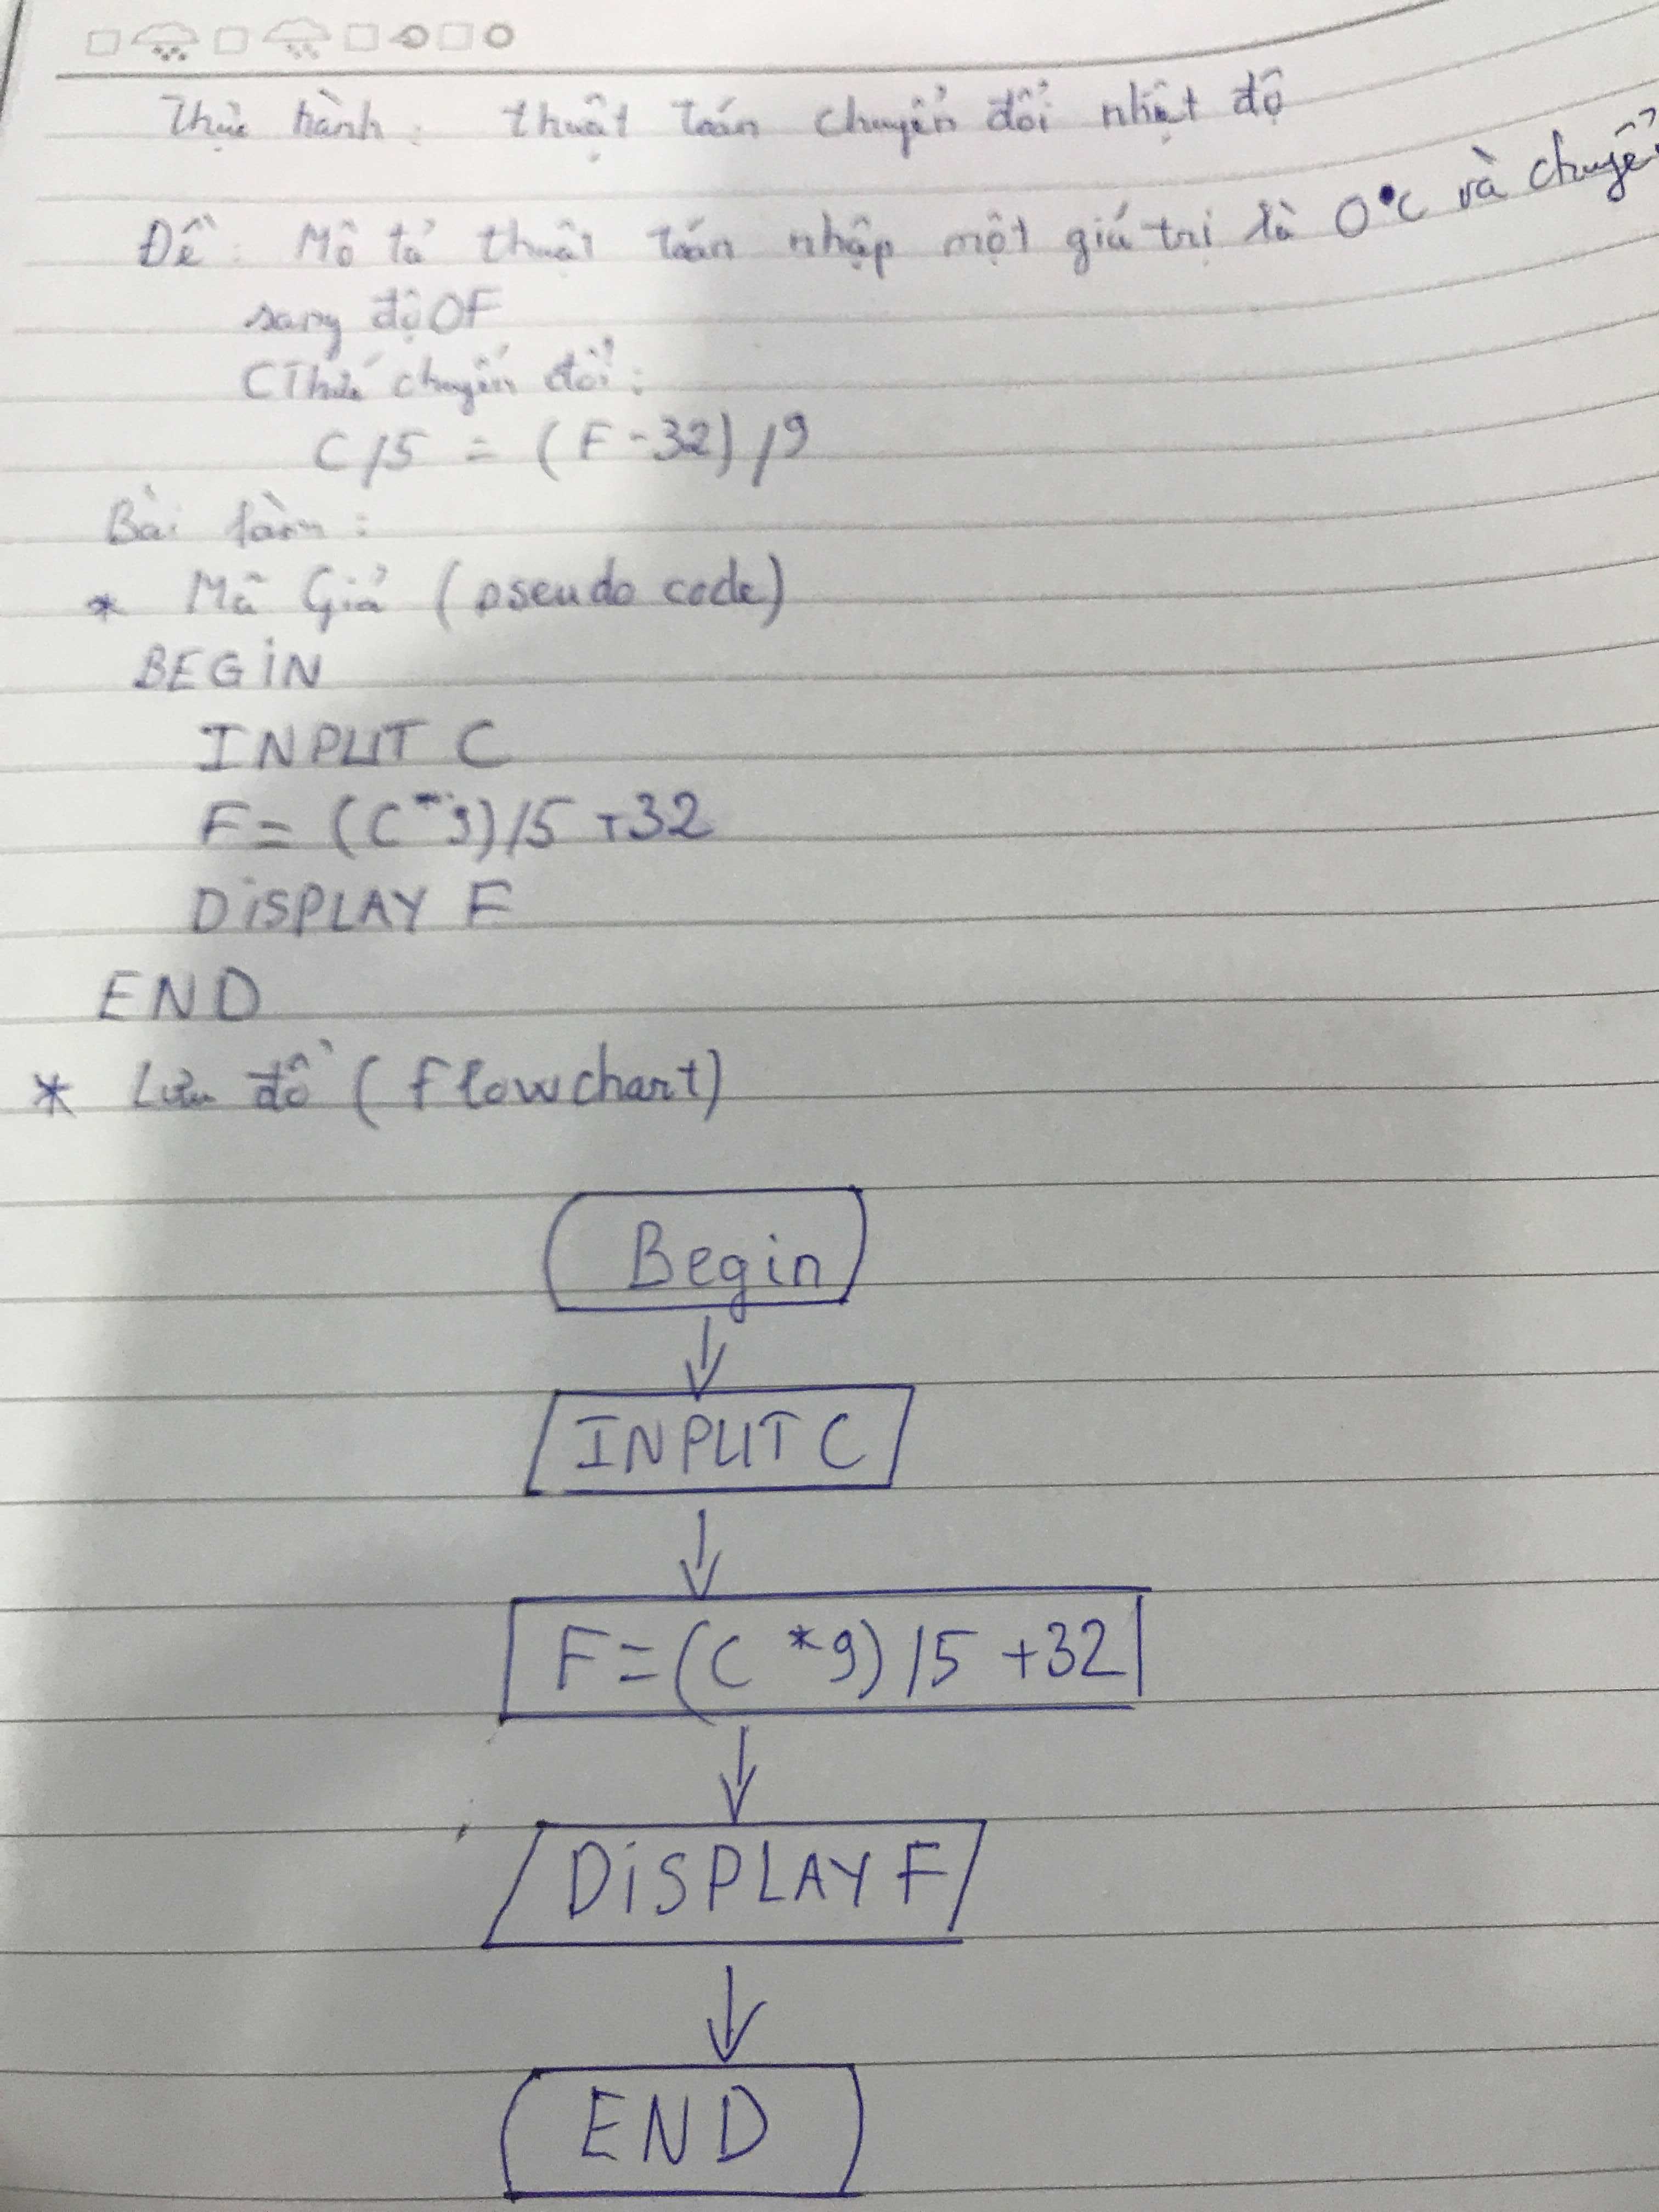 Thực hành: thuật toán chuyển đổi nhiệt độ
Đề: Mô tả thuật toán nhập một giá trị là 0°C và chuyển
sang độ 0F
CThức chuyển đổi:
C/5 = (F-32)/9
Bài làm:
* Mã Giả (pseudo code)
BEGiN
INPUT C
F = (C*9)/5 +32
DiSPLAY F
END
* Lưu đồ (flowchart)
Begin
INPUT C
F=(C *9)/5 +32
DiSPLAY F
END